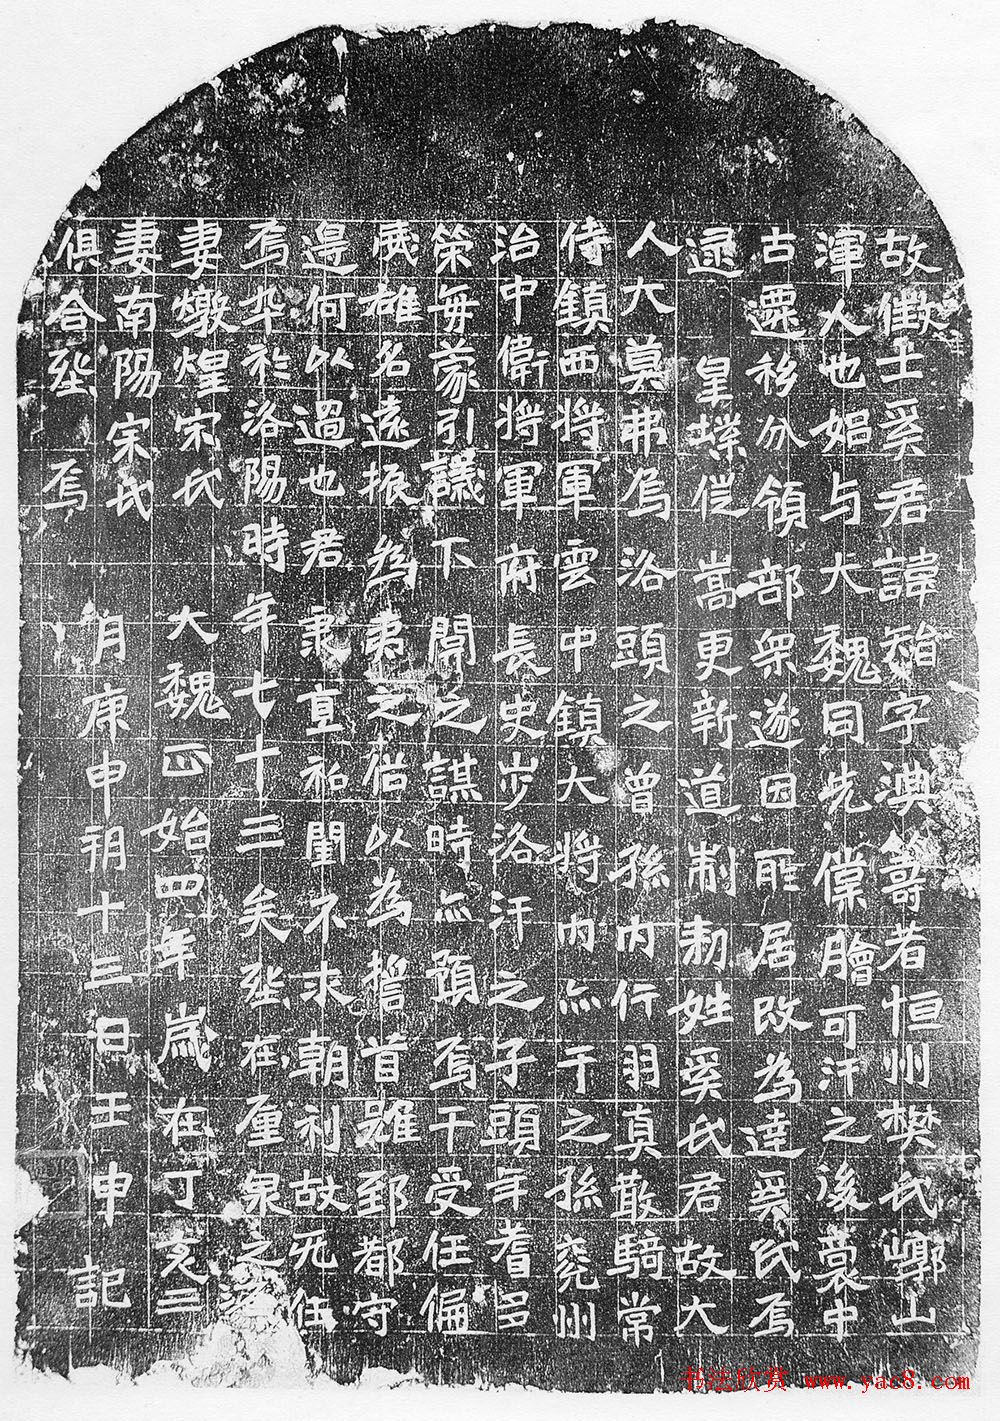 故徵士奚君諱智字淟籌者恒州樊氏崞山
渾人也始与大魏同先僕膾可汗之後裔中
古遷移分領部衆遂因所居改為達奚氏焉
逮 皇業徙嵩更新道制勑姓奚氏君故大
人大莫弗烏洛頭之曾孫内行羽真散騎常
侍鎮西將軍雲中鎮大將内亦干之孫兖州
治中衛將軍府長史步洛汗之子頭年耆多
策每蒙引議下關之謀時亦預焉干受任偏
威雄名遠振為夷之俗以為誓首雖郅都守
邊何以過也君秉直私閨不求朝利故无任
焉卒於洛陽時年七十三矣葬在廛泉之源
妻燉煌宋氏 大魏正始四年歲在丁亥三
妻南陽宋氏 月庚申朔十三日壬申 記
俱合葬焉
书法欣赏 www.yac8.com